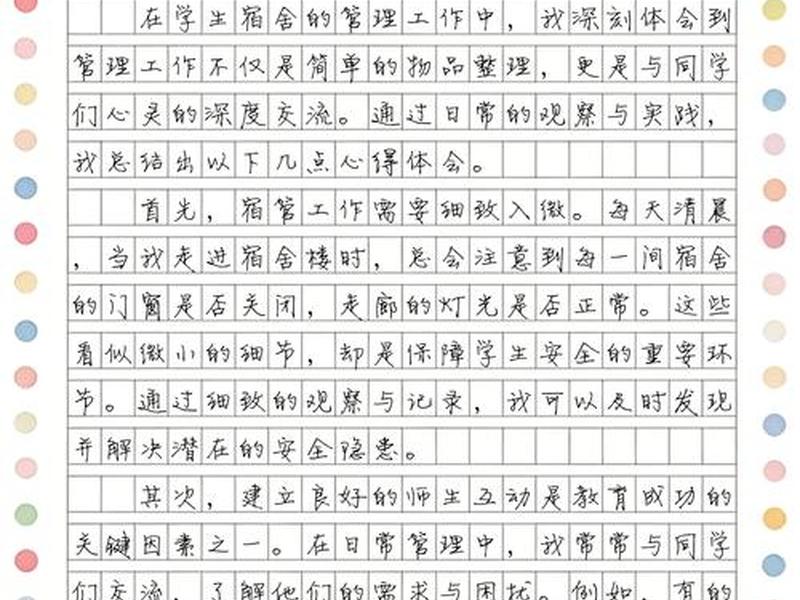 在学生宿舍的管理工作中，我深刻体会到
管理工作不仅是简单的物品整理，更是与同学
们心灵的深度交流。通过日常的观察与实践，
我总结出以下几点心得体会。
首先，宿管工作需要细致入微。每天清晨
，当我走进宿舍楼时，总会注意到每一间宿舍
的门窗是否关闭，走廊的灯光是否正常。这些
看似微小的细节，却是保障学生安全的重要环
节。通过细致的观察与记录，我可以及时发现
并解决潜在的安全隐患。
其次，建立良好的师生互动是教育成功的
关键因素之一。在日常管理中，我常常与同学
们交流，了解他们的需求与困扰。例如，有的